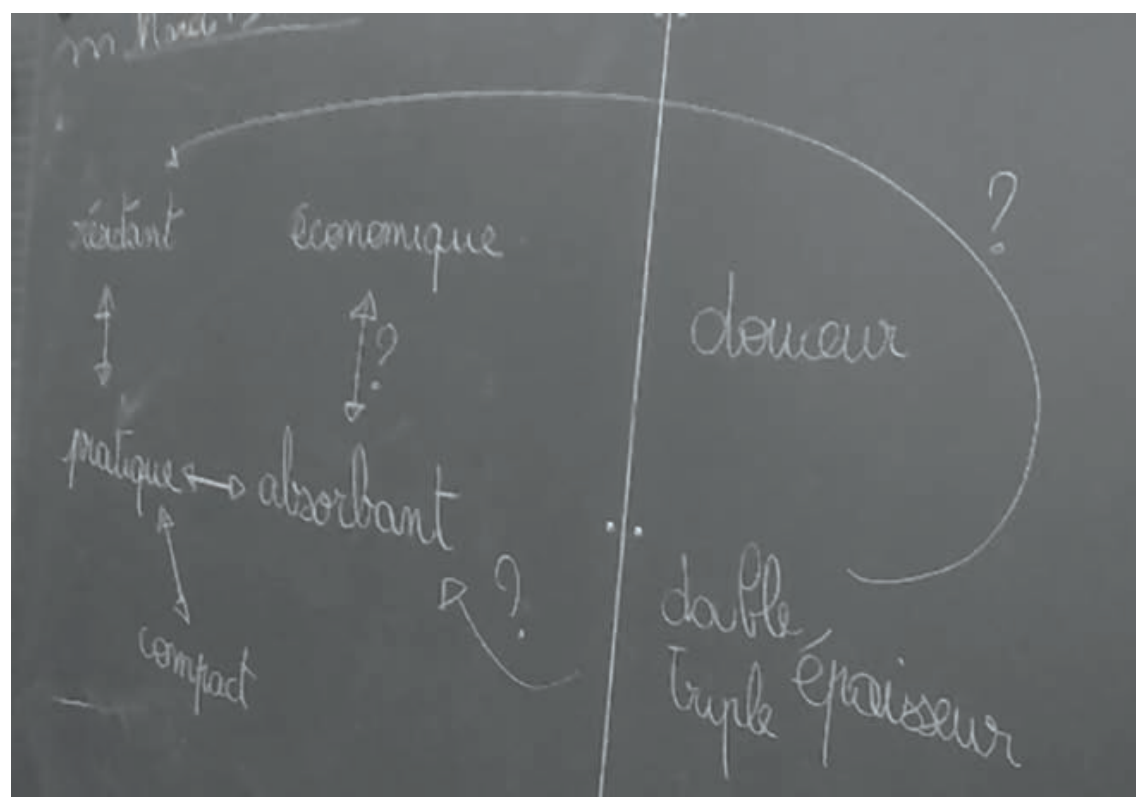 ?
résistant
économique
?
douceur
pratique
absorbant
?
double
triple épaisseur
compact